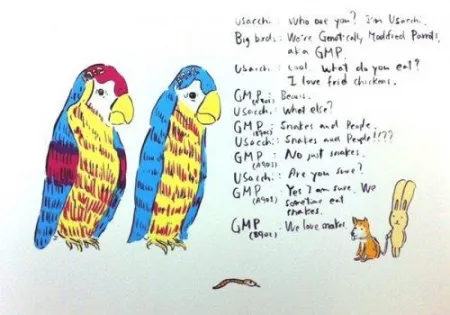 Usacchi : Who are you? I'm Usacchi.
Big birds : We're Genetically Modified Parrots,
aka GMP.
Usacchi : Cool. What do you eat?
I love frid chickens.
GMP : Beans.
Usacchi : What else?
GMP : Snakes and People.
Usacchi : Snakes and People!!??
GMP (A902) : No just snakes.
Usacchi : Are you sure?
GMP (A902) : Yes I am sure. We
sometime eat
snakes.
GMP (B902) : We love snakes.